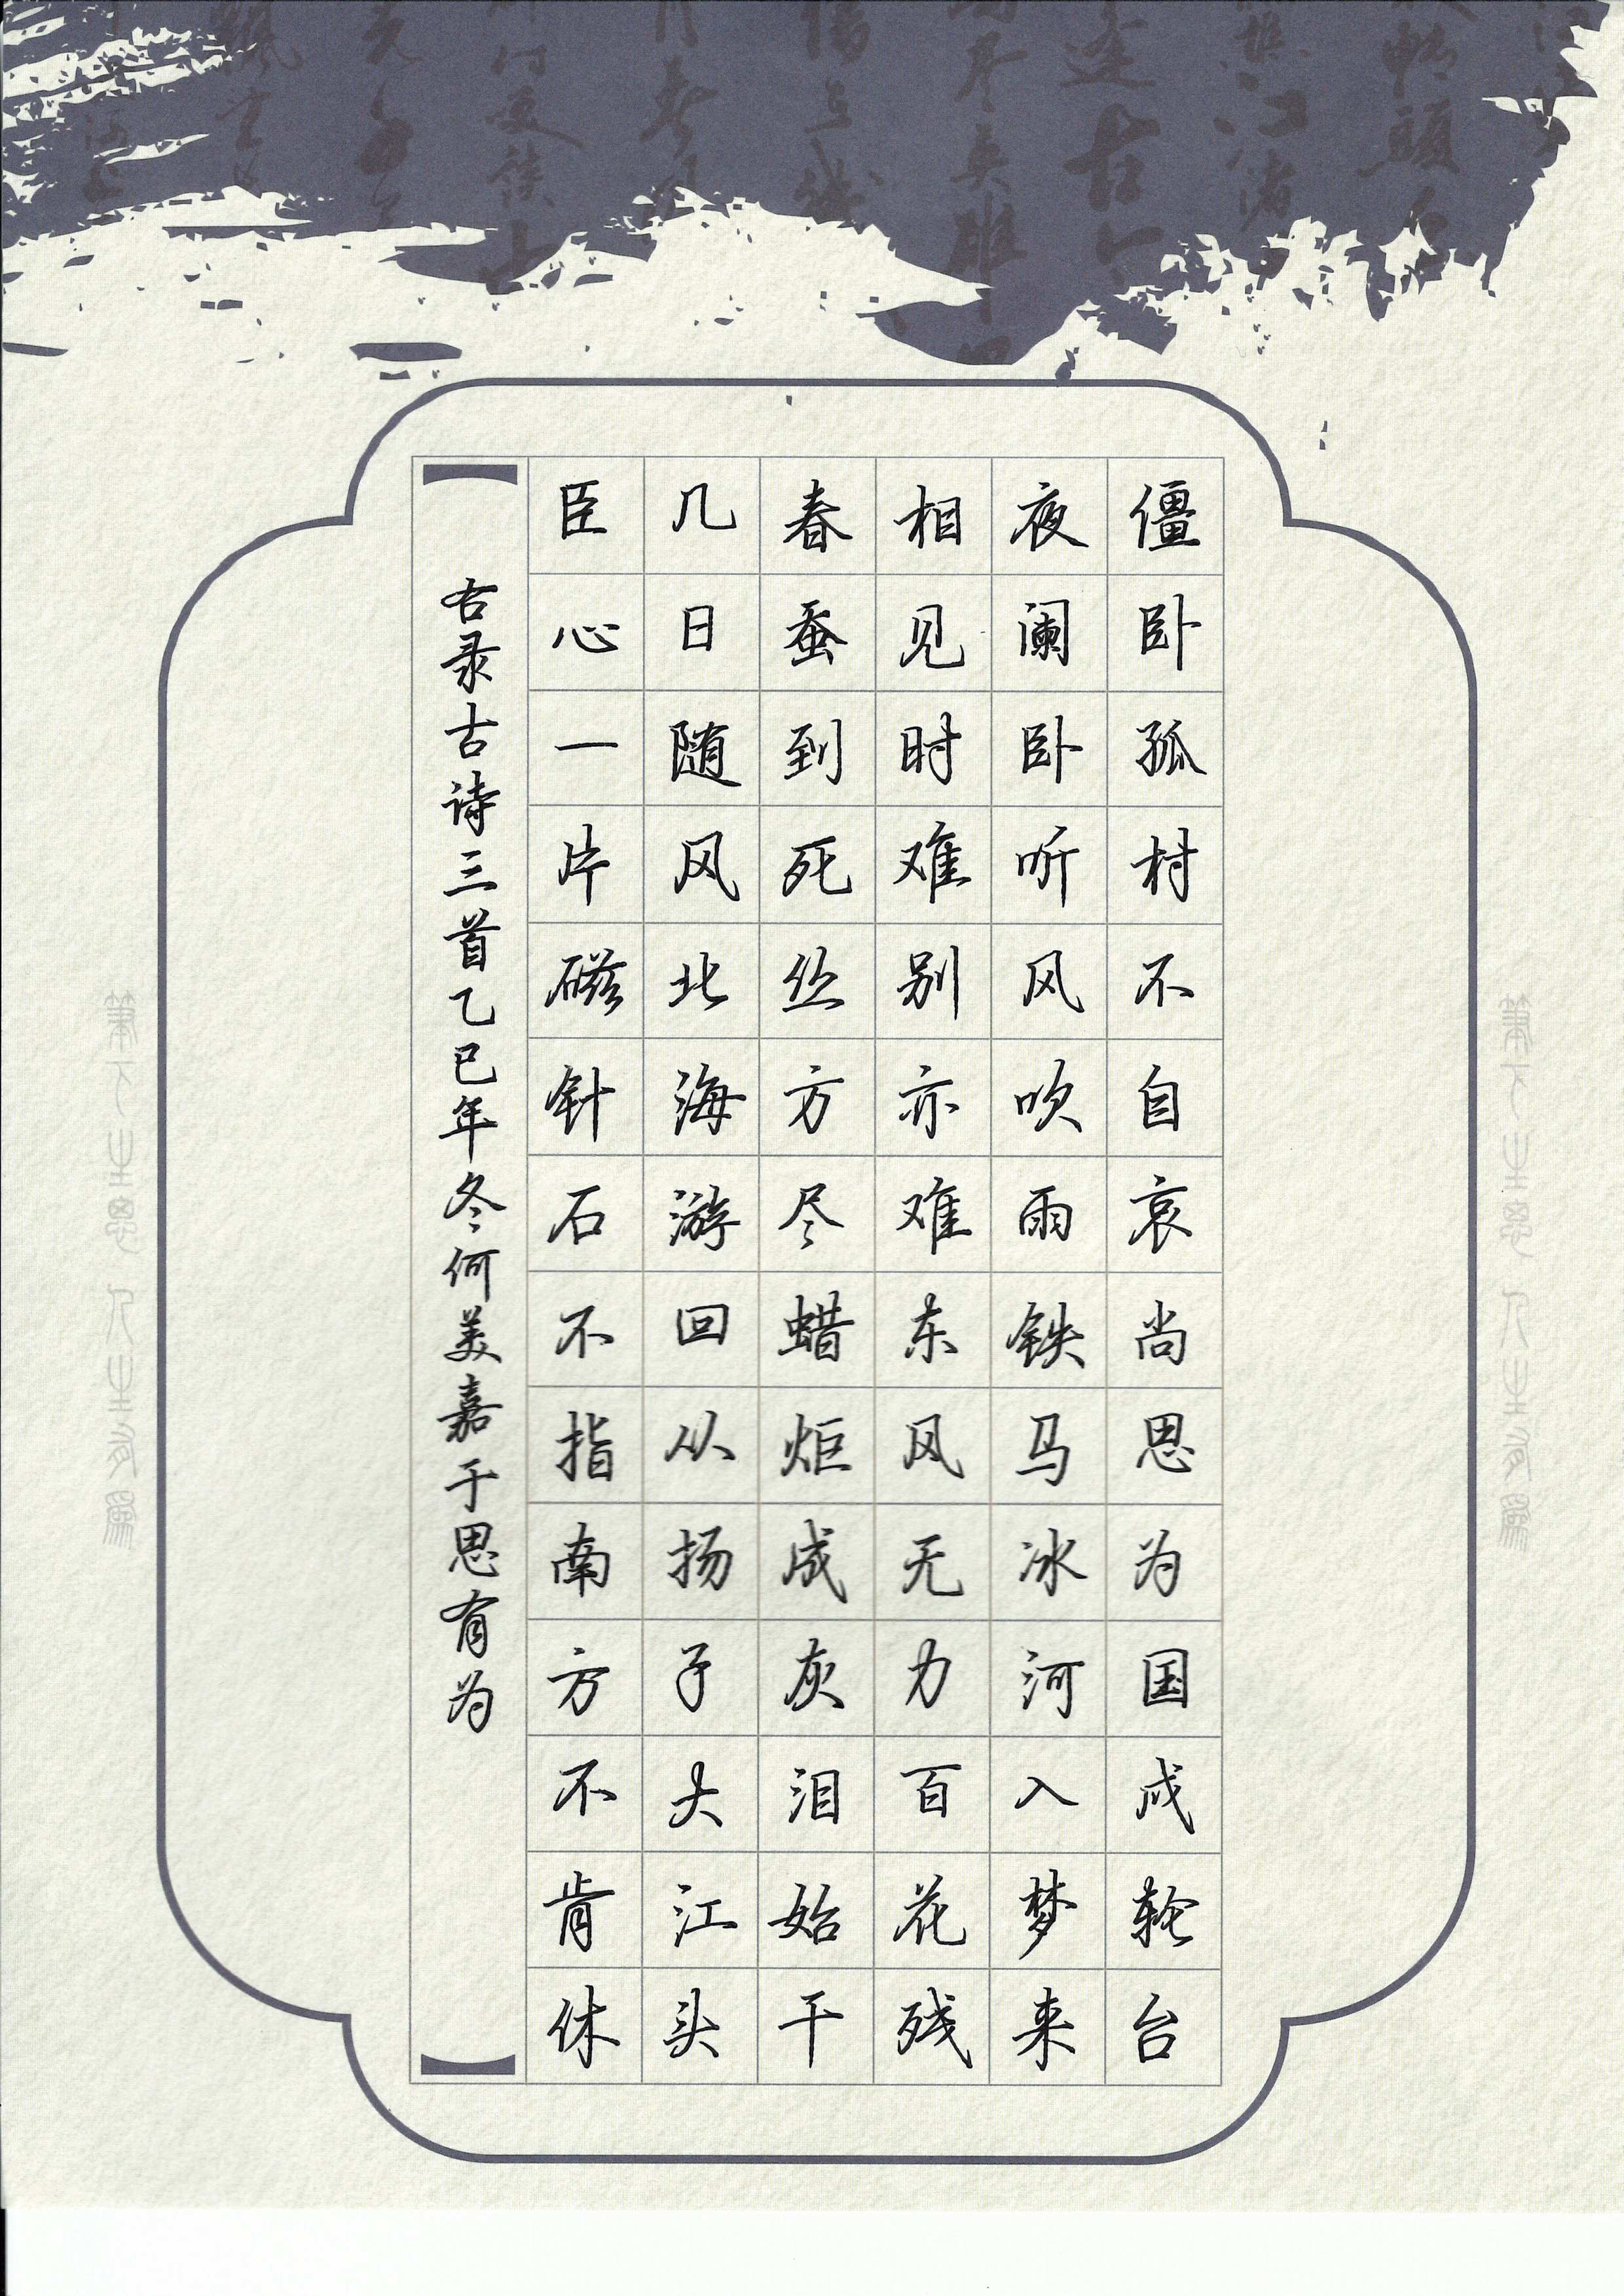 僵卧孤村不自哀尚思为国戍轮台
夜阑卧听风吹雨铁马冰河入梦来
相见时难别亦难东风无力百花残
春蚕到死丝方尽蜡炬成灰泪始干
几日随风北海游回从扬子大江头
臣心一片磁针石不指南方不肯休
右录古诗三首乙巳年冬何美嘉于思有为